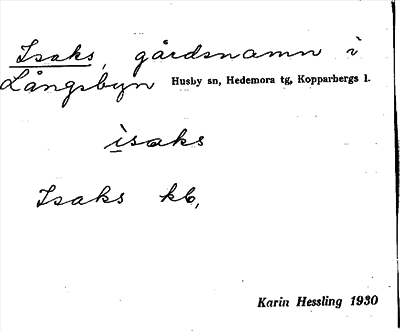 Isaks, gårdsnamn i
Långsbyn Husby sn, Hedemora tg, Kopparbergs l.
isaks
Isaks kb,
Karin Hessling 1930